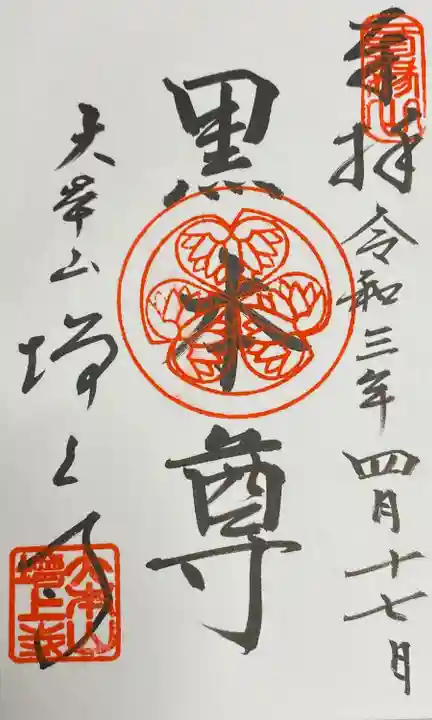 奉拝
三縁山
令和三年四月十七日
黒本尊
大本山増上寺
大本山
増上寺